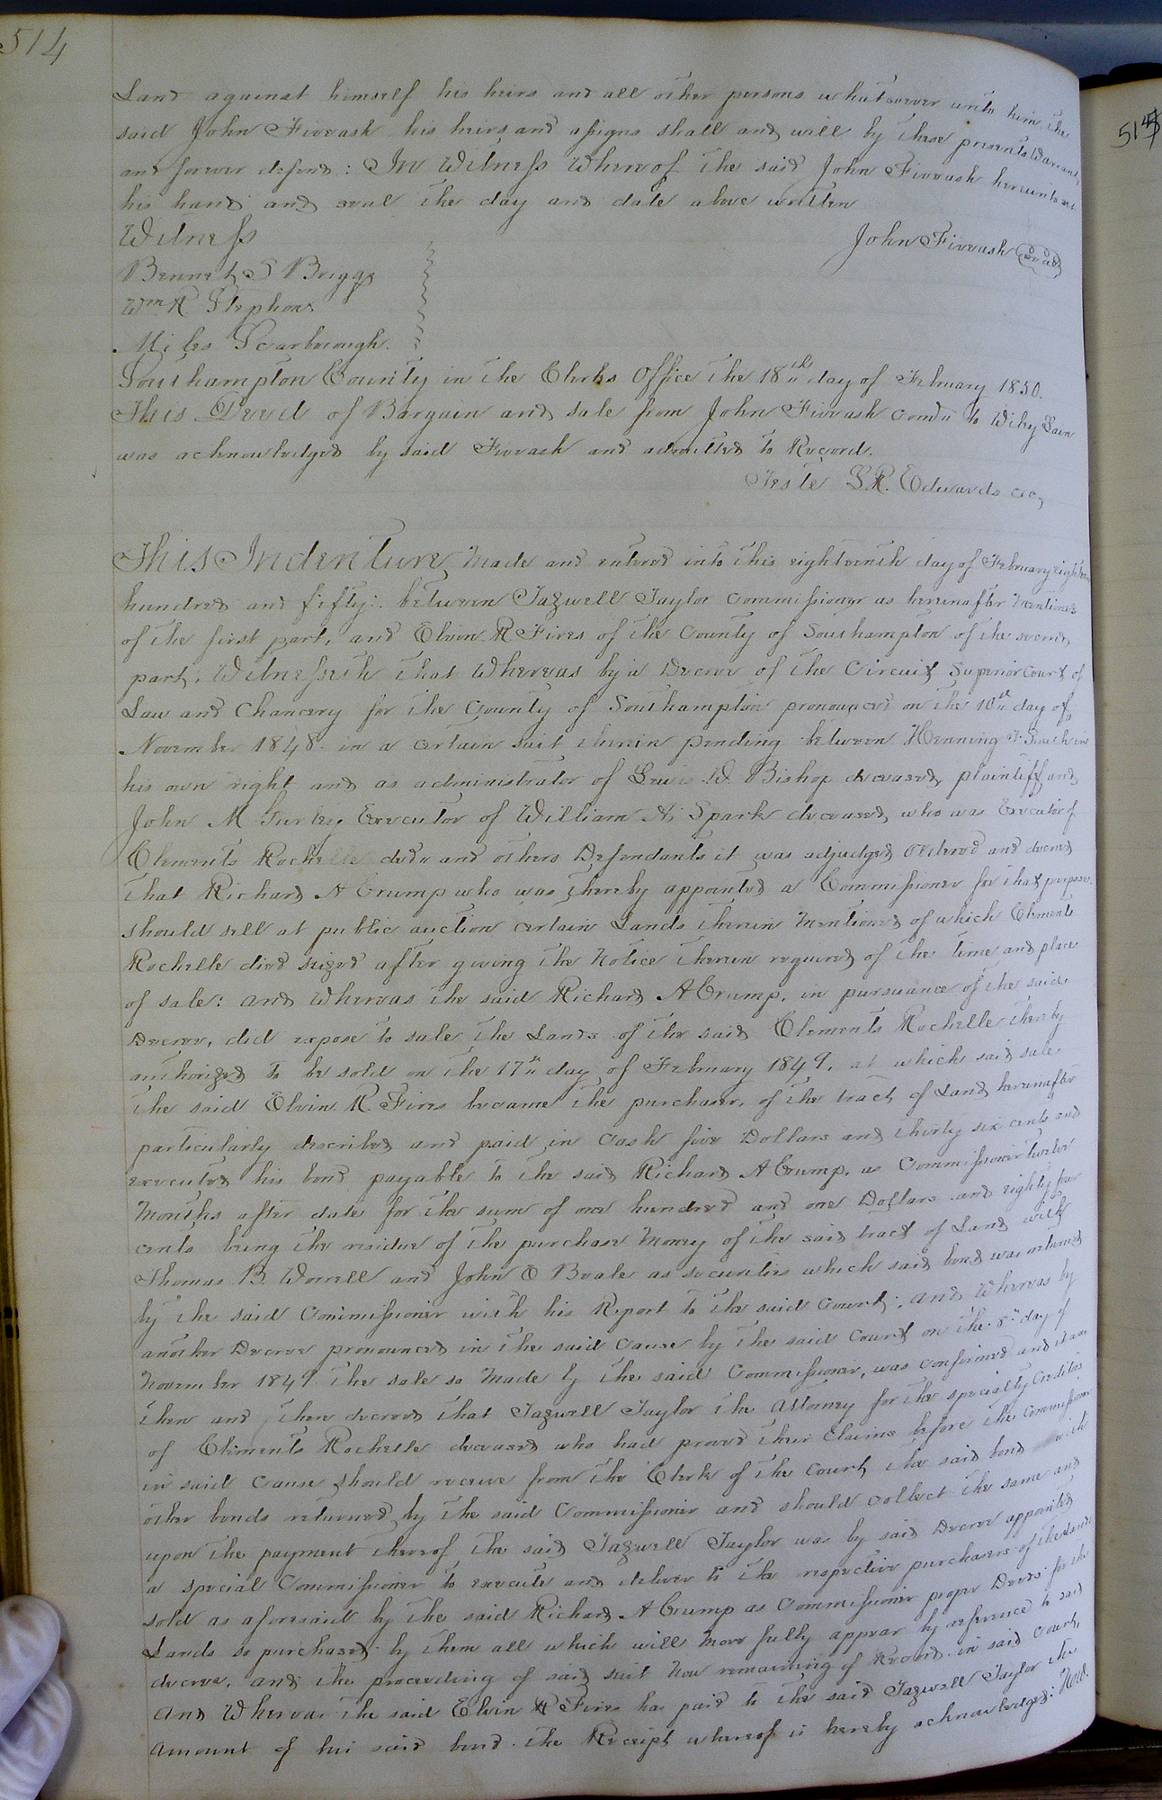 514
Land against himself his heirs and all other persons whatsoever unto him the
said John Fivvash his heirs and assigns shall and will by these presents Warrant
and forever defend: In Witness Whereof the said John Fivvash hereunto set
his hand and seal the day and date above written
Witness
John Fivvash Seal
Bennet S Briggs
Wm R Stephens
Miles Scarborough.
Southampton County in the Clerks Office the 18th day of February 1850.
This Deed of Bargain and sale from John Fivvash to Wiley
was acknowledged by said Fivvash and admitted to Record.
Teste L.R. Edwards cc
This Indenture Made and entered into this eighteenth day of February eighteen
hundred and fifty: between Tazwell Taylor Commissioner as hereinafter Mentioned
of the first part, and Elvin R Fires of the County of Southampton of the second
part, Witnesseth that Whereas by a Decree of the Circuit Superior Court of
Law and Chancery for the County of Southampton pronounced on the 10th day of
November 1848. in a certain suit therein pending between Henning T. Smith in
his own right and as administrator of Lewis W. Bishop deceased, plaintiff and
John M Gurley Executor of William N. Spark deceased, who was Executor of
Clements Rochelle decd. and others Defendants it was adjudged Ordered and decreed
that Richard A Crump who was thereby appointed a Commissioner for that purpose
should sell at public auction certain Lands therein Mentioned of which Clements
Rochelle died seized after giving the Notice therein required of the time and place
of sale: and Whereas the said Richard A Crump, in pursuance of the said
Decree, did expose to sale the Lands of the said Clements Rochelle thereby
authorized to be sold on the 17th day of February 1849, at which said sale
the said Elvin R. Fires became the purchaser, of the tract of Land hereinafter
particularly described and paid in Cash five Dollars and thirty six cents and
executed his bond payable to the said Richard A Crump, as Commissioner twelve
Months after date for the sum of one hundred and one Dollars and eighty four
cents being the residue of the purchase Money of the said tract of Land with
Thomas B. Worrell and John O Beale as securities which said bond was returned
by the said Commissioner with his Report to the said Court; and Whereas by
another Decree pronounced in the said Cause by the said Court on the 5th day of
November 1849 the sale so Made by the said Commissioner, was confirmed and it was
then and then decreed that Tazwell Taylor the Attorney for the specialty Creditors
of Clements Rochelle deceased who had proved their Claims before the Commissioner
in said Cause should receive from the Clerk of the Court, the said bond with
other bonds returned by the said Commissioner and should collect the same and
upon the payment thereof the said Tazwell Taylor was by said Decree appointed
a special Commissioner to execute and deliver to the respective purchasers of the lands
sold as aforesaid by the said Richard A Crump as Commissioner proper Deeds for the
Lands so purchased by them all which will More fully appear by reference to said
decree, and the proceeding of said suit Now remaining of Record in said Court,
And Whereas the said Elvin R Fires has paid to the said Tazwell Taylor the
amount of his said bond. The Receipt whereof is hereby acknowledged: Now.